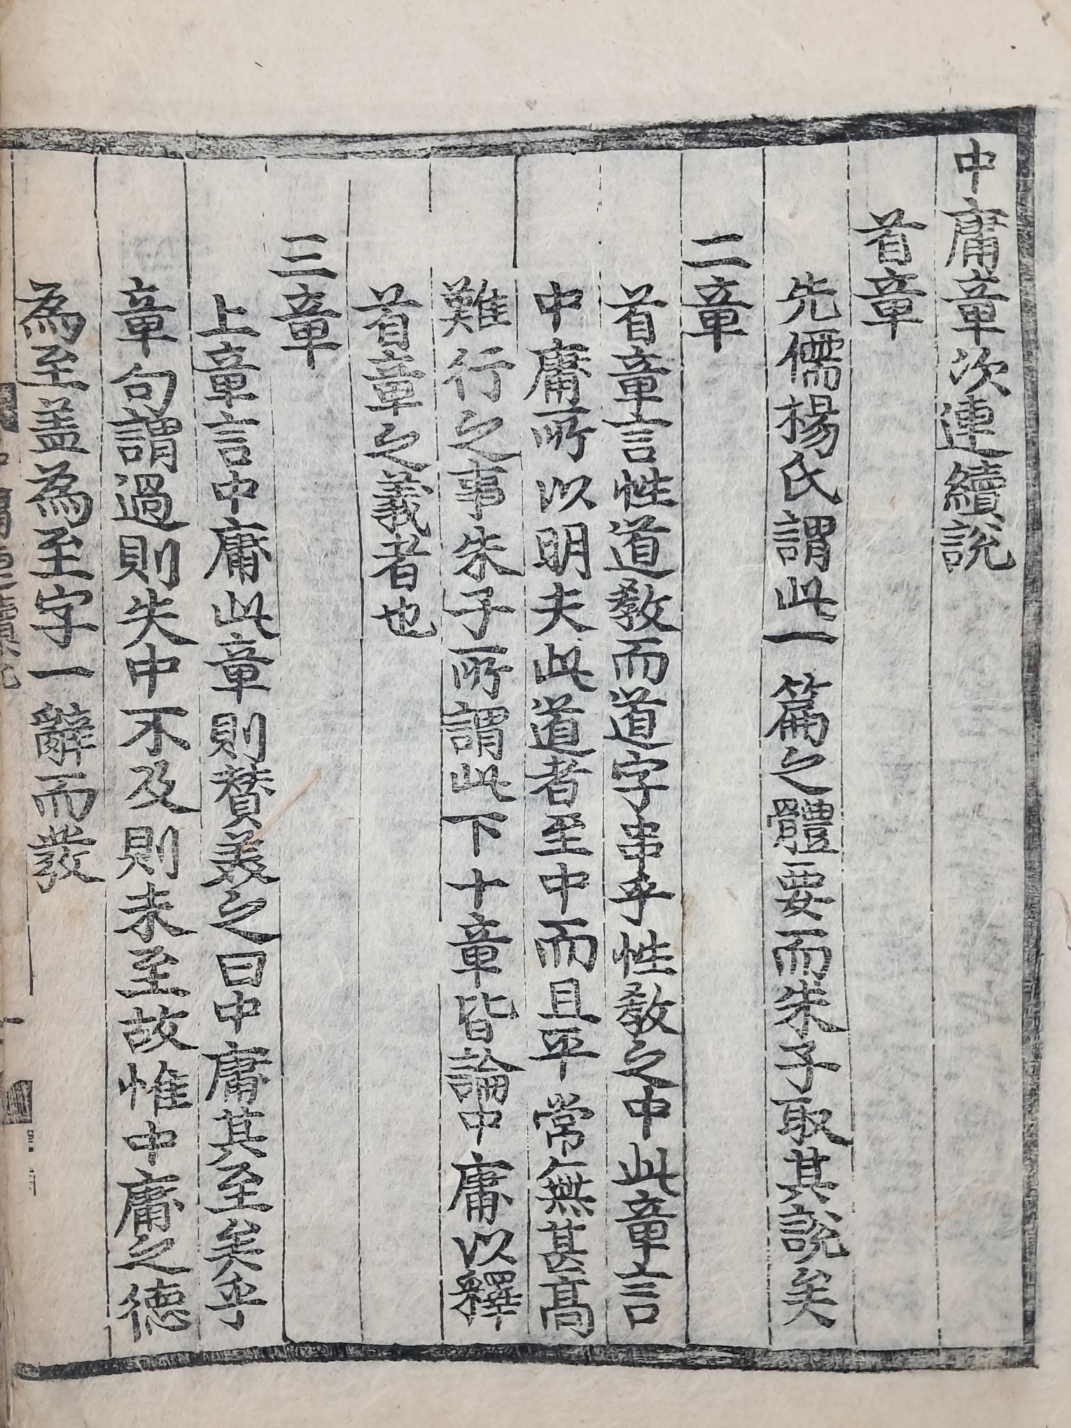 中庸章次連續說
首章
先儒楊氏謂此一篇之體要而朱子取其說矣
二章
首章言性道敎而道字串乎性敎之中此章言
中庸所以明夫此道者至中而且平常無甚高
難行之事朱子所謂此下十章皆論中庸以釋
首章之義者也
三章
上章言中庸此章則賛美之曰中庸其至矣乎
章句謂過則失中不及則未至故惟中庸之德
為至盖為至字一辭而發